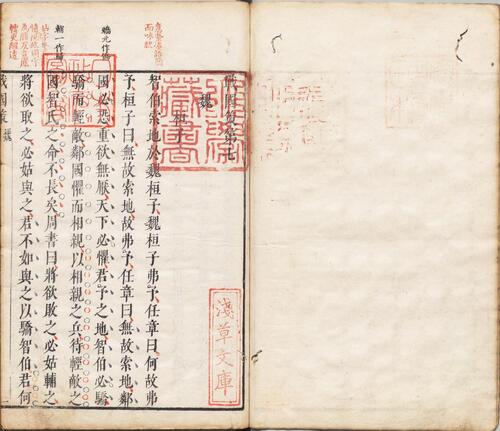 戰國策卷七
魏
桓子
智伯索地於魏桓子魏桓子弗予任章曰何故弗
予桓子曰無故索地故弗予任章曰無故索地鄰
國必恐重欲無厭天下必懼君予之地智伯必驕
驕而輕敵鄰國懼而相親以相親之兵待輕敵之
國智氏之命不長矣周書曰將欲敗之必姑輔之
將欲取之必姑與之君不如與之以驕智伯君何
戰國策 魏
淺草文庫